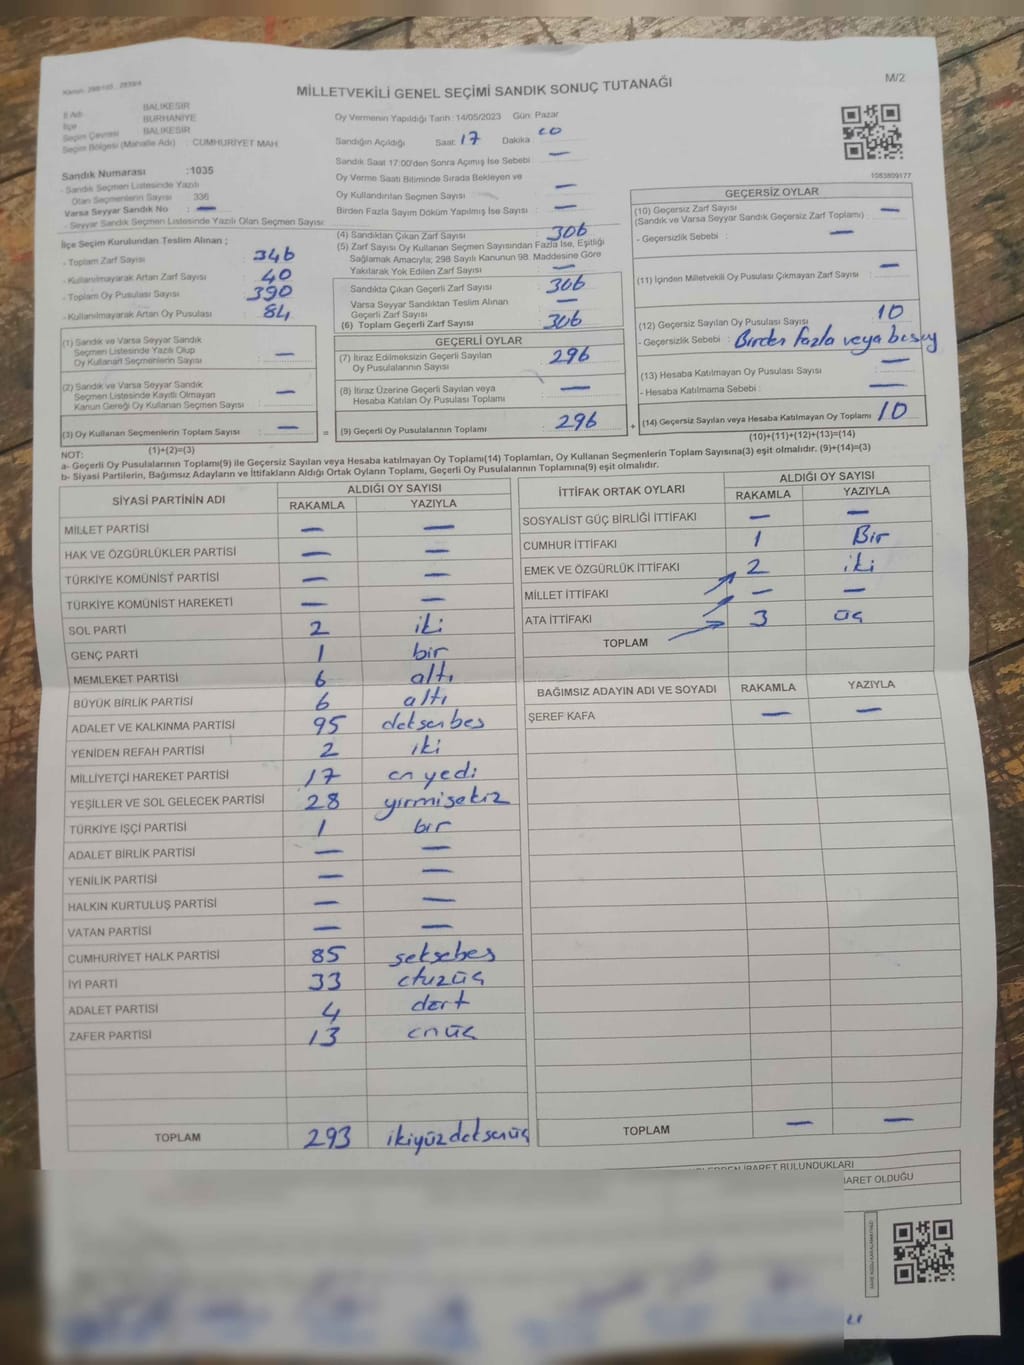 MİLLETVEKİLİ GENEL SEÇİMİ SANDIK SONUÇ TUTANAĞI
M/2
İl Adı BALIKESİR
İlçe BURHANİYE
Seçim Çevresi BALIKESİR
Seçim Bölgesi (Mahalle Adı) : CUMHURİYET MAH.
Sandık Numarası :1035
- Sandık Seçmen Listesinde Yazılı
Olan Seçmenlerin Sayısı 336
Varsa Seyyar Sandık No : —
- Seyyar Sandık Seçmen Listesinde Yazılı Olan Seçmen Sayısı:
İlçe Seçim Kurulundan Teslim Alınan ;
- Toplam Zarf Sayısı : 346
- Kullanılmayarak Artan Zarf Sayısı : 40
- Toplam Oy Pusulası Sayısı : 390
- Kullanılmayarak Artan Oy Pusulası : 84
(1) Sandık ve Varsa Seyyar Sandık
Seçmen Listesinde Yazılı Olup
Oy Kullanan Seçmenlerin Sayısı : —
(2) Sandık ve Varsa Seyyar Sandık
Seçmen Listesinde Kayıtlı Olmayan
Kanun Gereği Oy Kullanan Seçmen Sayısı : —
(3) Oy Kullanan Seçmenlerin Toplam Sayısı : —
(1)+(2)=(3)
Oy Vermenin Yapıldığı Tarih :14/05/2023 Gün: Pazar
Sandığın Açıldığı Saat: 17 Dakika :
Sandık Saat 17:00'den Sonra Açımış İse Sebebi : —
Oy Verme Saati Bitiminde Sırada Bekleyen ve
Oy Kullandırılan Seçmen Sayısı : —
Birden Fazla Sayım Döküm Yapılmış İse Sayısı : —
(4) Sandıktan Çıkan Zarf Sayısı : 306
(5) Zarf Sayısı Oy Kullanan Seçmen Sayısından Fazla İse, Eşitliği
Sağlamak Amacıyla; 298 Sayılı Kanunun 98. Maddesine Göre
Yakılarak Yok Edilen Zarf Sayısı : —
Sandıkta Çıkan Geçerli Zarf Sayısı : 306
Varsa Seyyar Sandıktan Teslim Alınan
Geçerli Zarf Sayısı : —
(6) Toplam Geçerli Zarf Sayısı : 306
GEÇERLİ OYLAR
(7) İtiraz Edilmeksizin Geçerli Sayılan
Oy Pusulalarının Sayısı : 296
(8) İtiraz Üzerine Geçerli Sayılan veya
Hesaba Katılan Oy Pusulası Toplamı : —
= (9) Geçerli Oy Pusulalarının Toplamı : 296
1083809177
GEÇERSİZ OYLAR
(10) Geçersiz Zarf Sayısı : —
(Sandık ve Varsa Seyyar Sandık Geçersiz Zarf Toplamı)
- Geçersizlik Sebebi : —
(11) İçinden Milletvekili Oy Pusulası Çıkmayan Zarf Sayısı : —
(12) Geçersiz Sayılan Oy Pusulası Sayısı : 10
- Geçersizlik Sebebi : Birden fazla veya
(13) Hesaba Katılmayan Oy Pusulası Sayısı : —
- Hesaba Katılmama Sebebi : —
+ (14) Geçersiz Sayılan veya Hesaba Katılmayan Oy Toplamı : 10
(10)+(11)+(12)+(13)=(14)
NOT:
a- Geçerli Oy Pusulalarının Toplamı(9) ile Geçersiz Sayılan veya Hesaba katılmayan Oy Toplamı(14) Toplamları, Oy Kullanan Seçmenlerin Toplam Sayısına(3) eşit olmalıdır. (9)+(14)=(3)
b- Siyasi Partilerin, Bağımsız Adayların ve İttifakların Aldığı Ortak Oyların Toplamı, Geçerli Oy Pusulalarının Toplamına(9) eşit olmalıdır.
SİYASİ PARTİNİN ADI ALDIĞI OY SAYISI
RAKAMLA YAZIYLA
MİLLET PARTİSİ — —
HAK VE ÖZGÜRLÜKLER PARTİSİ — —
TÜRKİYE KOMÜNİST PARTİSİ — —
TÜRKİYE KOMÜNİST HAREKETİ — —
SOL PARTİ 2 iki
GENÇ PARTİ 1 bir
MEMLEKET PARTİSİ 6 altı
BÜYÜK BİRLİK PARTİSİ 6 altı
ADALET VE KALKINMA PARTİSİ 95 doksanbes
YENİDEN REFAH PARTİSİ 2 iki
MİLLİYETÇİ HAREKET PARTİSİ 17 on yedi
YEŞİLLER VE SOL GELECEK PARTİSİ 28 yirmisekiz
TÜRKİYE İŞÇİ PARTİSİ 1 bir
ADALET BİRLİK PARTİSİ — —
YENİLİK PARTİSİ — —
HALKIN KURTULUŞ PARTİSİ — —
VATAN PARTİSİ — —
CUMHURİYET HALK PARTİSİ 85 seksebes
İYİ PARTİ 33 otuzüç
ADALET PARTİSİ 4 dört
ZAFER PARTİSİ 13 onüç
TOPLAM 293 ikiyüzdoksanüç
İTTİFAK ORTAK OYLARI ALDIĞI OY SAYISI
RAKAMLA YAZIYLA
SOSYALİST GÜÇ BİRLİĞİ İTTİFAKI — —
CUMHUR İTTİFAKI 1 Bir
EMEK VE ÖZGÜRLÜK İTTİFAKI 2 iki
MİLLET İTTİFAKI — —
ATA İTTİFAKI 3 üç
TOPLAM
BAĞIMSIZ ADAYIN ADI VE SOYADI RAKAMLA YAZIYLA
ŞEREF KAFA — —
TOPLAM — —
İBARET BULUNDUKLARI
İBARET OLDUĞU